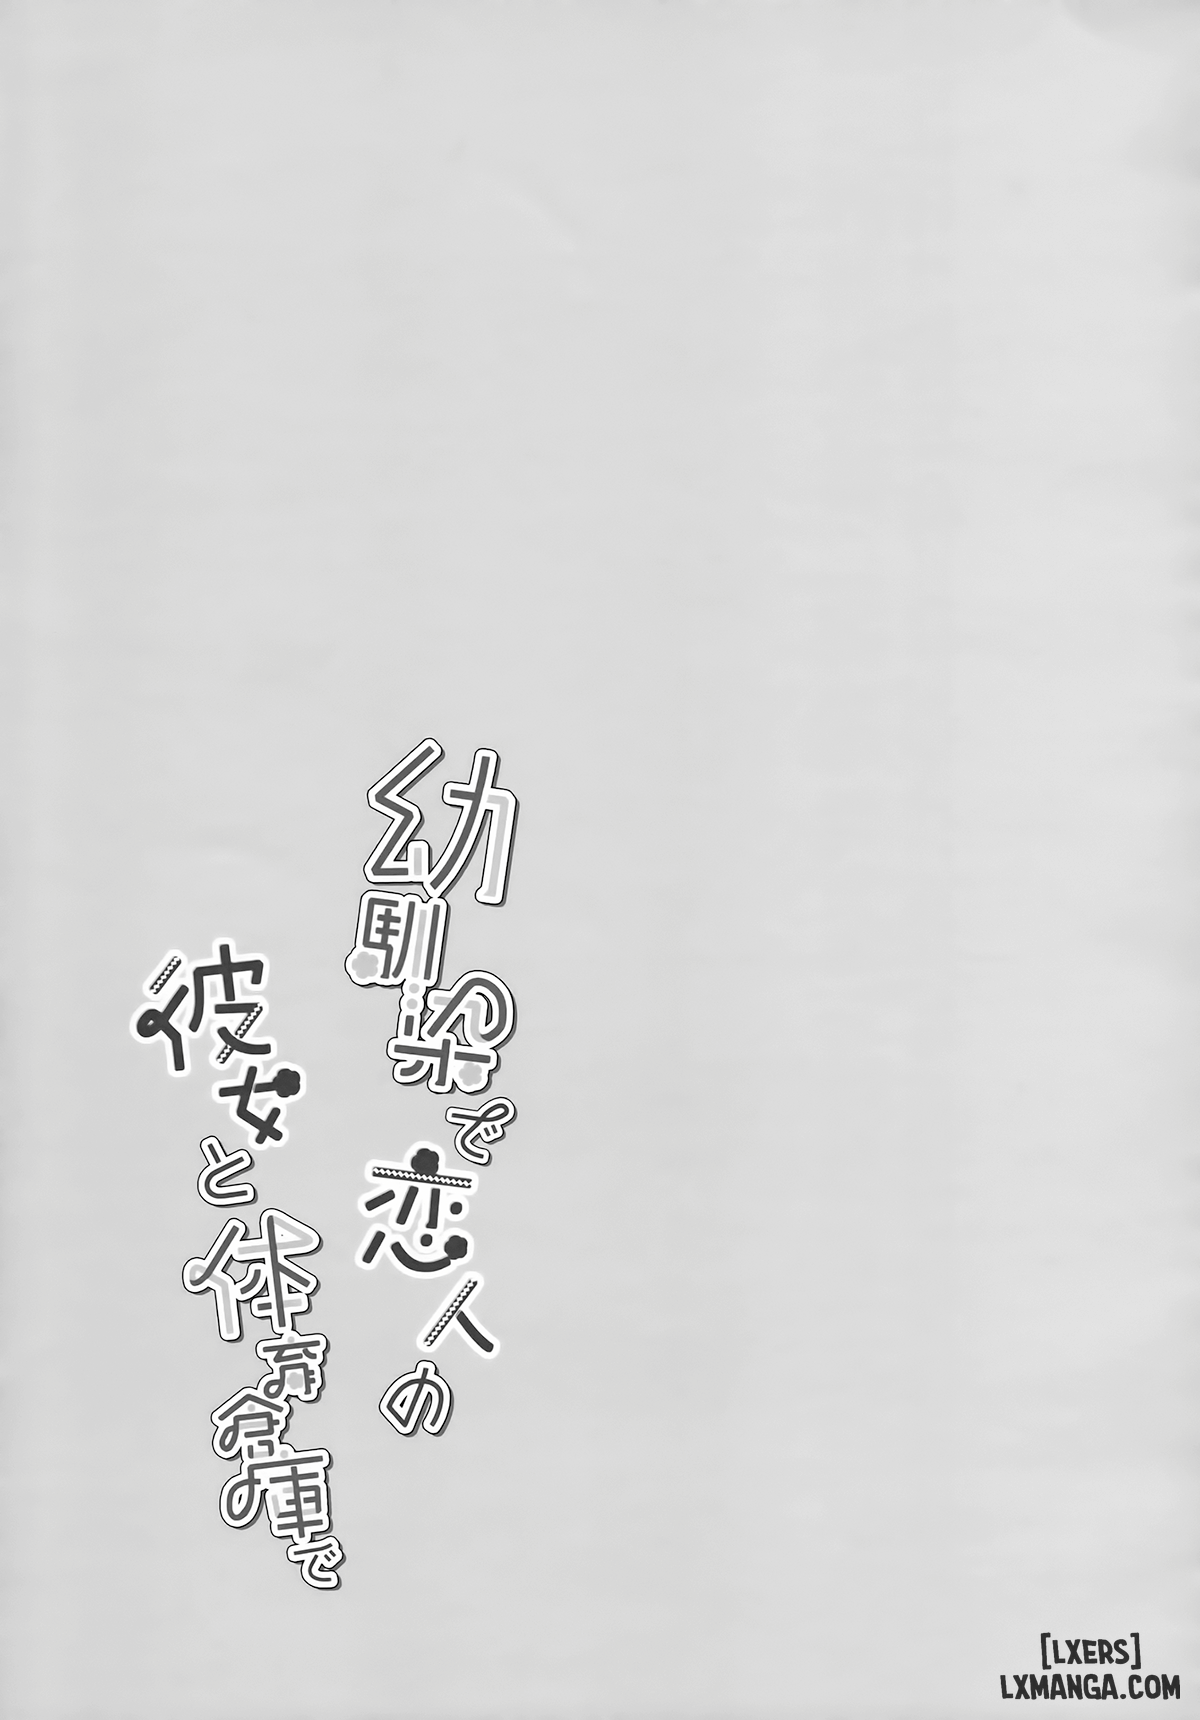 幼馴染で恋人の
彼女と体育倉庫で
[LXERS]
LXMANGA.COM